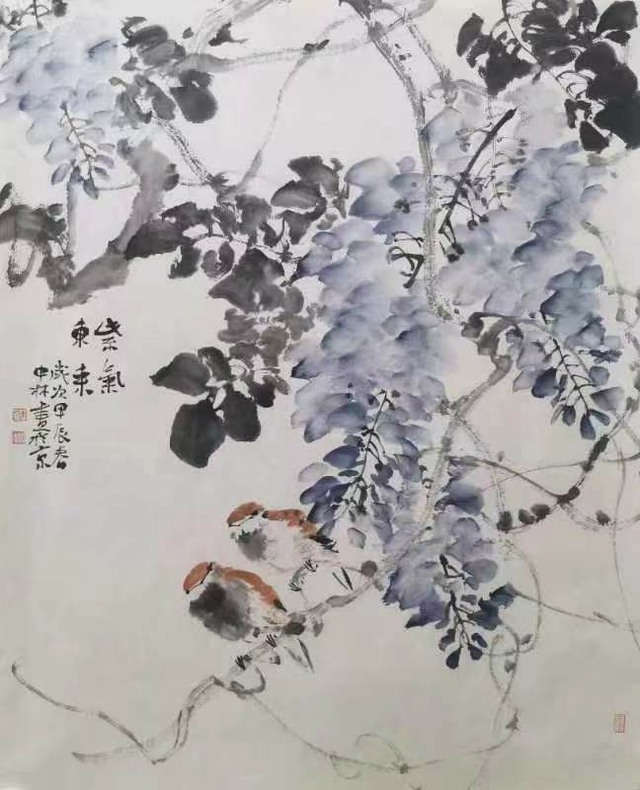 紫氣
東来
歲次甲辰春
中林畫於京